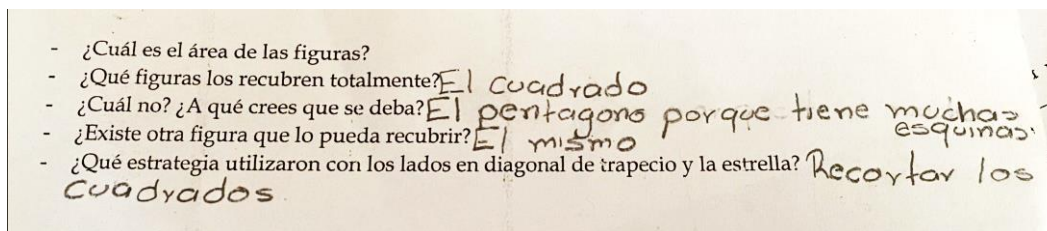 - ¿Cuál es el área de las figuras?
- ¿Qué figuras los recubren totalmente? El cuadrado
- ¿Cuál no? ¿A qué crees que se deba? El pentagono porque tiene muchas esquinas.
- ¿Existe otra figura que lo pueda recubrir? El mismo
- ¿Qué estrategia utilizaron con los lados en diagonal de trapecio y la estrella? Recortar los
cuadrados